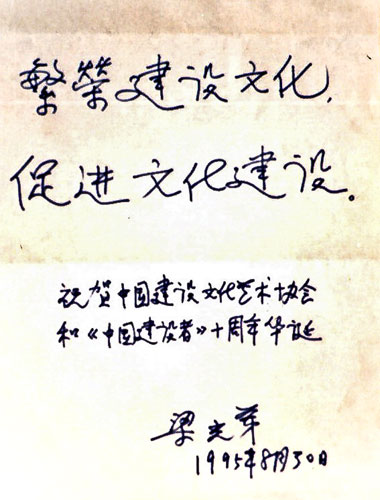 繁荣建设文化,
促进文化建设。
祝贺中国建设文化艺术协会
和《中国建设者》十周年华诞
梁
1995年8月30日